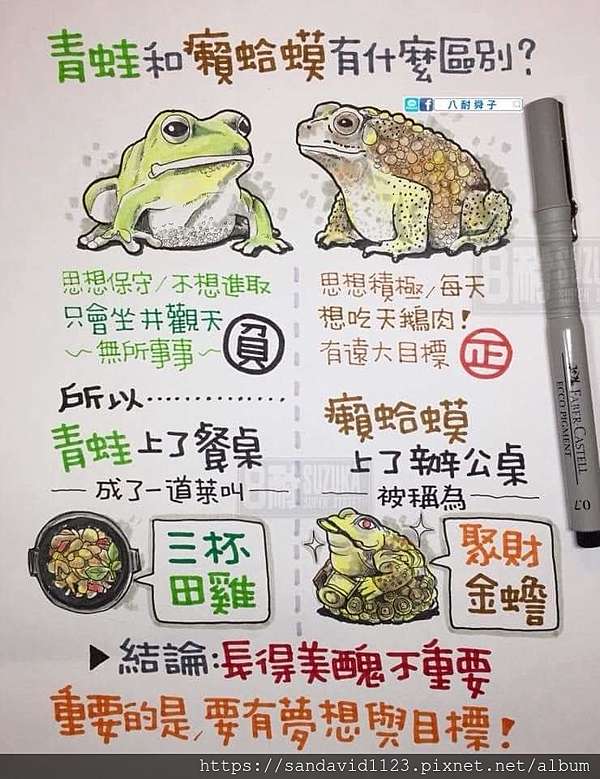 青蛙和癩蛤蟆有什麼區別?
八耐舜子
思想保守/不想進取
只會坐井觀天
~無所事事~
負
思想積極/每天
想吃天鵝肉!
有遠大目標
正
所以…………
青蛙上了餐桌
成了一道菜叫
三杯
田雞
癩蛤蟆
上了辦公桌
被稱為
聚財
金蟾
FABER CASTELL
ECCO PIGMENT
0.7
▶結論:長得美醜不重要
重要的是/要有夢想與目標!
https://sandavid1123.pixnet.net/album